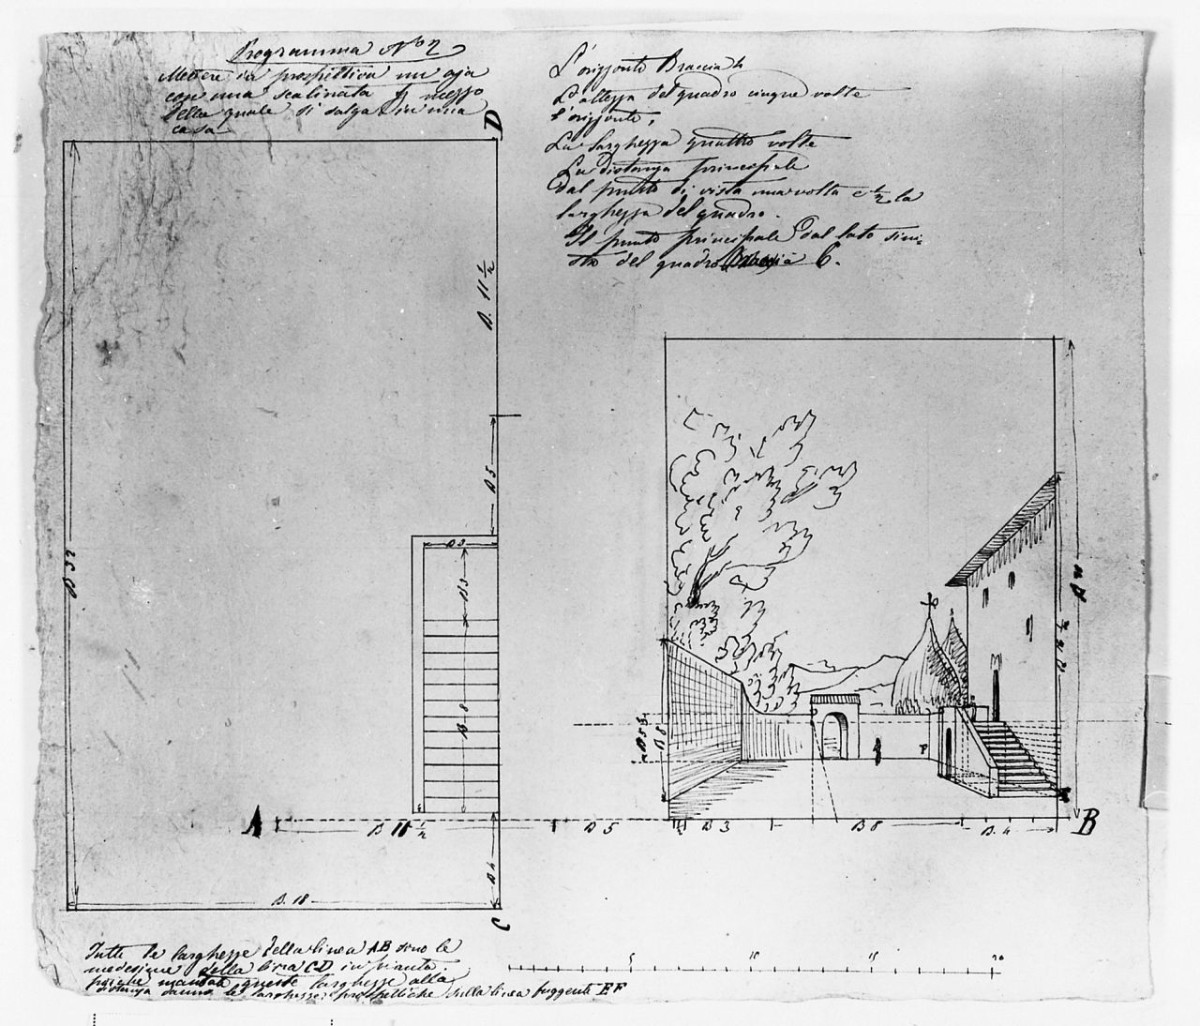 Programma N.º 2
Mettere in prospettiva un aja
con una scalinata p. mezzo
della quale si salga in una
casa
L'orizzonte Braccia 4
L'altezza del quadro cinque volte
l'orizzonte,
La larghezza quattro volte
La distanza principale
dal punto di vista una volta e ½ la
larghezza del quadro.
Il punto principale P dal lato sini-
stro del quadro Braccia 6.
D
B. 11 ½
B 5
B 32
B 3
B 3
B. 8
B 4
B. 18
C
A
B. 11 ½
B 5
B 3
B 8
B. 4
B
B 8
F
5
10
15
20
Tutte le larghezze della linea AB sono le
medesime della linea CD in pianta
poiché mandate queste larghezze alla
distanza danno le larghezze prospettiche sulla linea fuggente EF